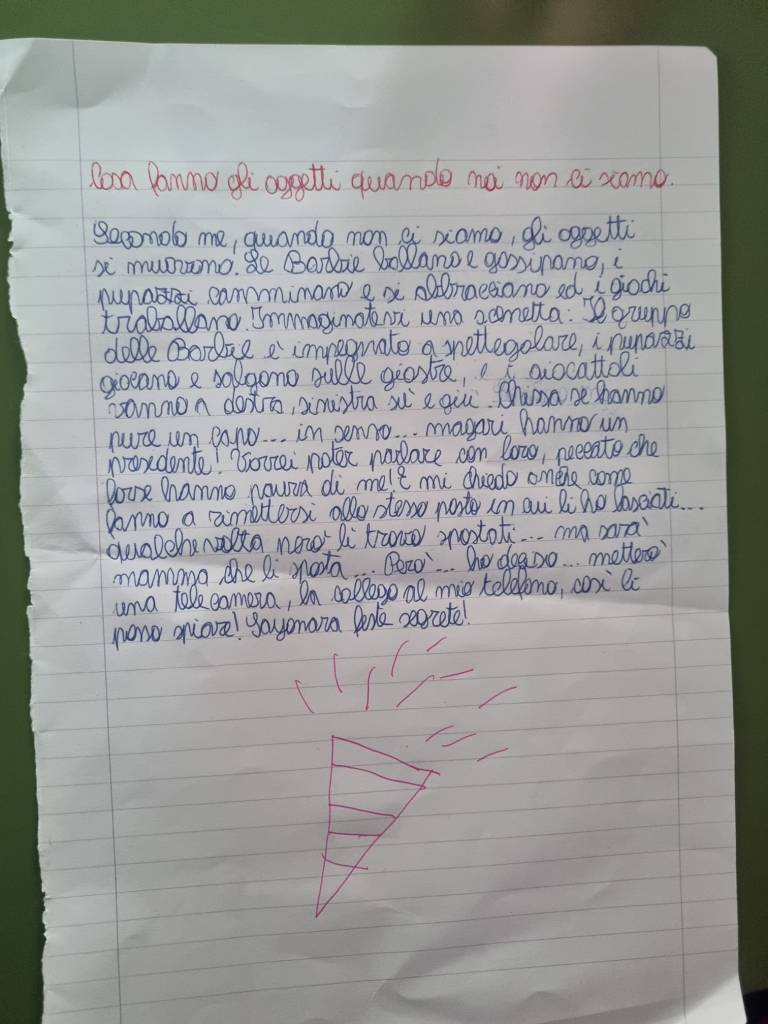 Cosa fanno gli oggetti quando noi non ci siamo.
Secondo me, quando non ci siamo, gli oggetti
si muovono. Le Barbie ballano e gossipano, i
pupazzi camminano e si abbracciano ed i giochi
traballano. Immaginatevi una scenetta: Il gruppo
delle Barbie e' impegnato a spettegolare, i pupazzi
giocano e salgono sulle giostre, e i giocattoli
vanno a destra, sinistra su e giù. Chissa se hanno
pure un capo... in senso... magari hanno un
presidente! Vorrei poter parlare con loro, peccato che
forse hanno paura di me! E mi chiedo anche come
fanno a rimettersi allo stesso posto in cui li ho lasciati...
qualche volta però li trovo spostati... ma sarà
mamma che li sposta... Però... ho deciso... metterò
una telecamera, la collego al mio telefono, così li
posso spiare! Sayonara feste segrete!